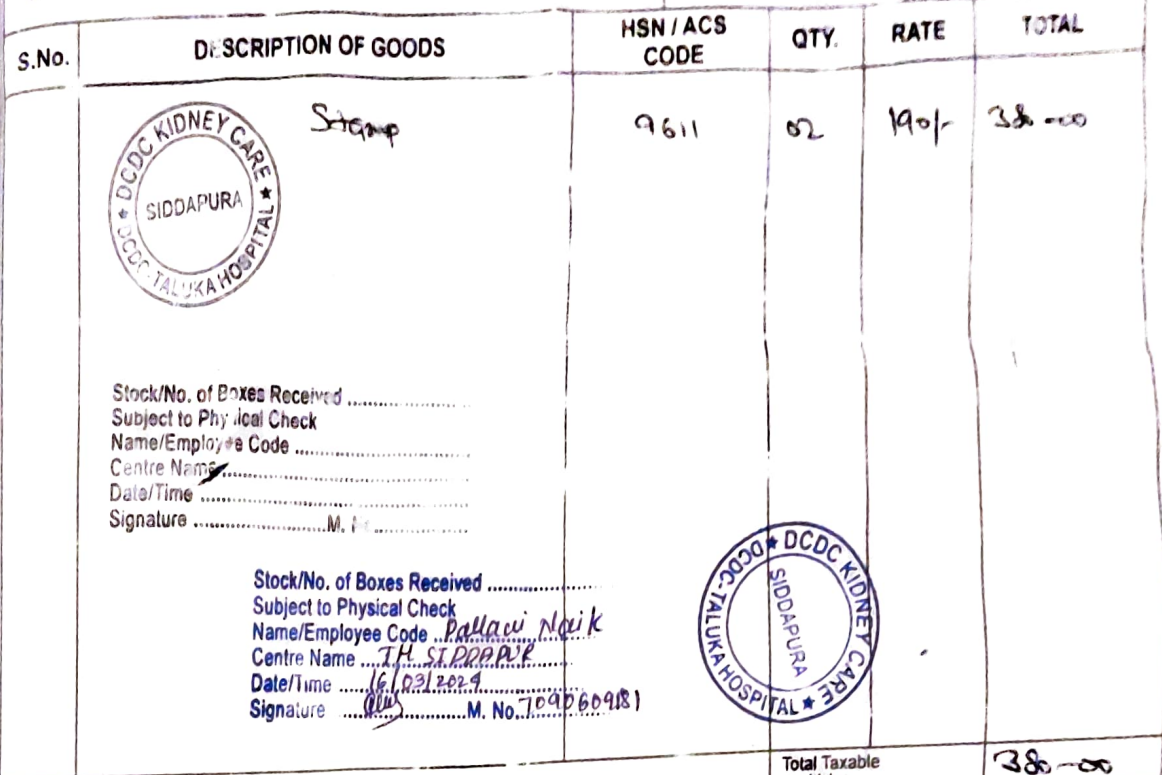 S.No. DESCRIPTION OF GOODS HSN / ACS CODE QTY. RATE TOTAL
Stamp 9611 02 190/- 380-00
DCDC KIDNEY CARE
SIDDAPURA
DCDC-TALUKA HOSPITAL
Stock/No. of Boxes Received ....................
Subject to Physical Check
Name/Employee Code ....................
Centre Name ....................
Date/Time ....................
Signature .................... M.
Stock/No. of Boxes Received ....................
Subject to Physical Check
Name/Employee Code Pallavi Naik
Centre Name TH SIDDAPUR
Date/Time 16/03/2024
Signature .................... M. No. 7090609181
DCDC KIDNEY CARE
SIDDAPURA
DCDC-TALUKA HOSPITAL
Total Taxable 380-00